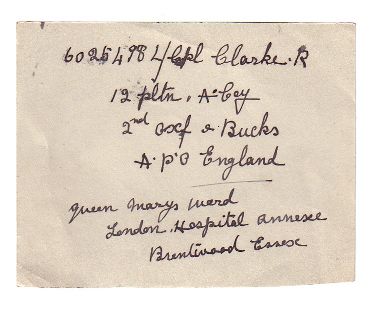 6025498 L/Cpl Clarke. R
12 pltn. A. Coy
2nd Oxf & Bucks
A.P.O England
queen Marys Ward
London. Hospital annexe
Brentwood Essex